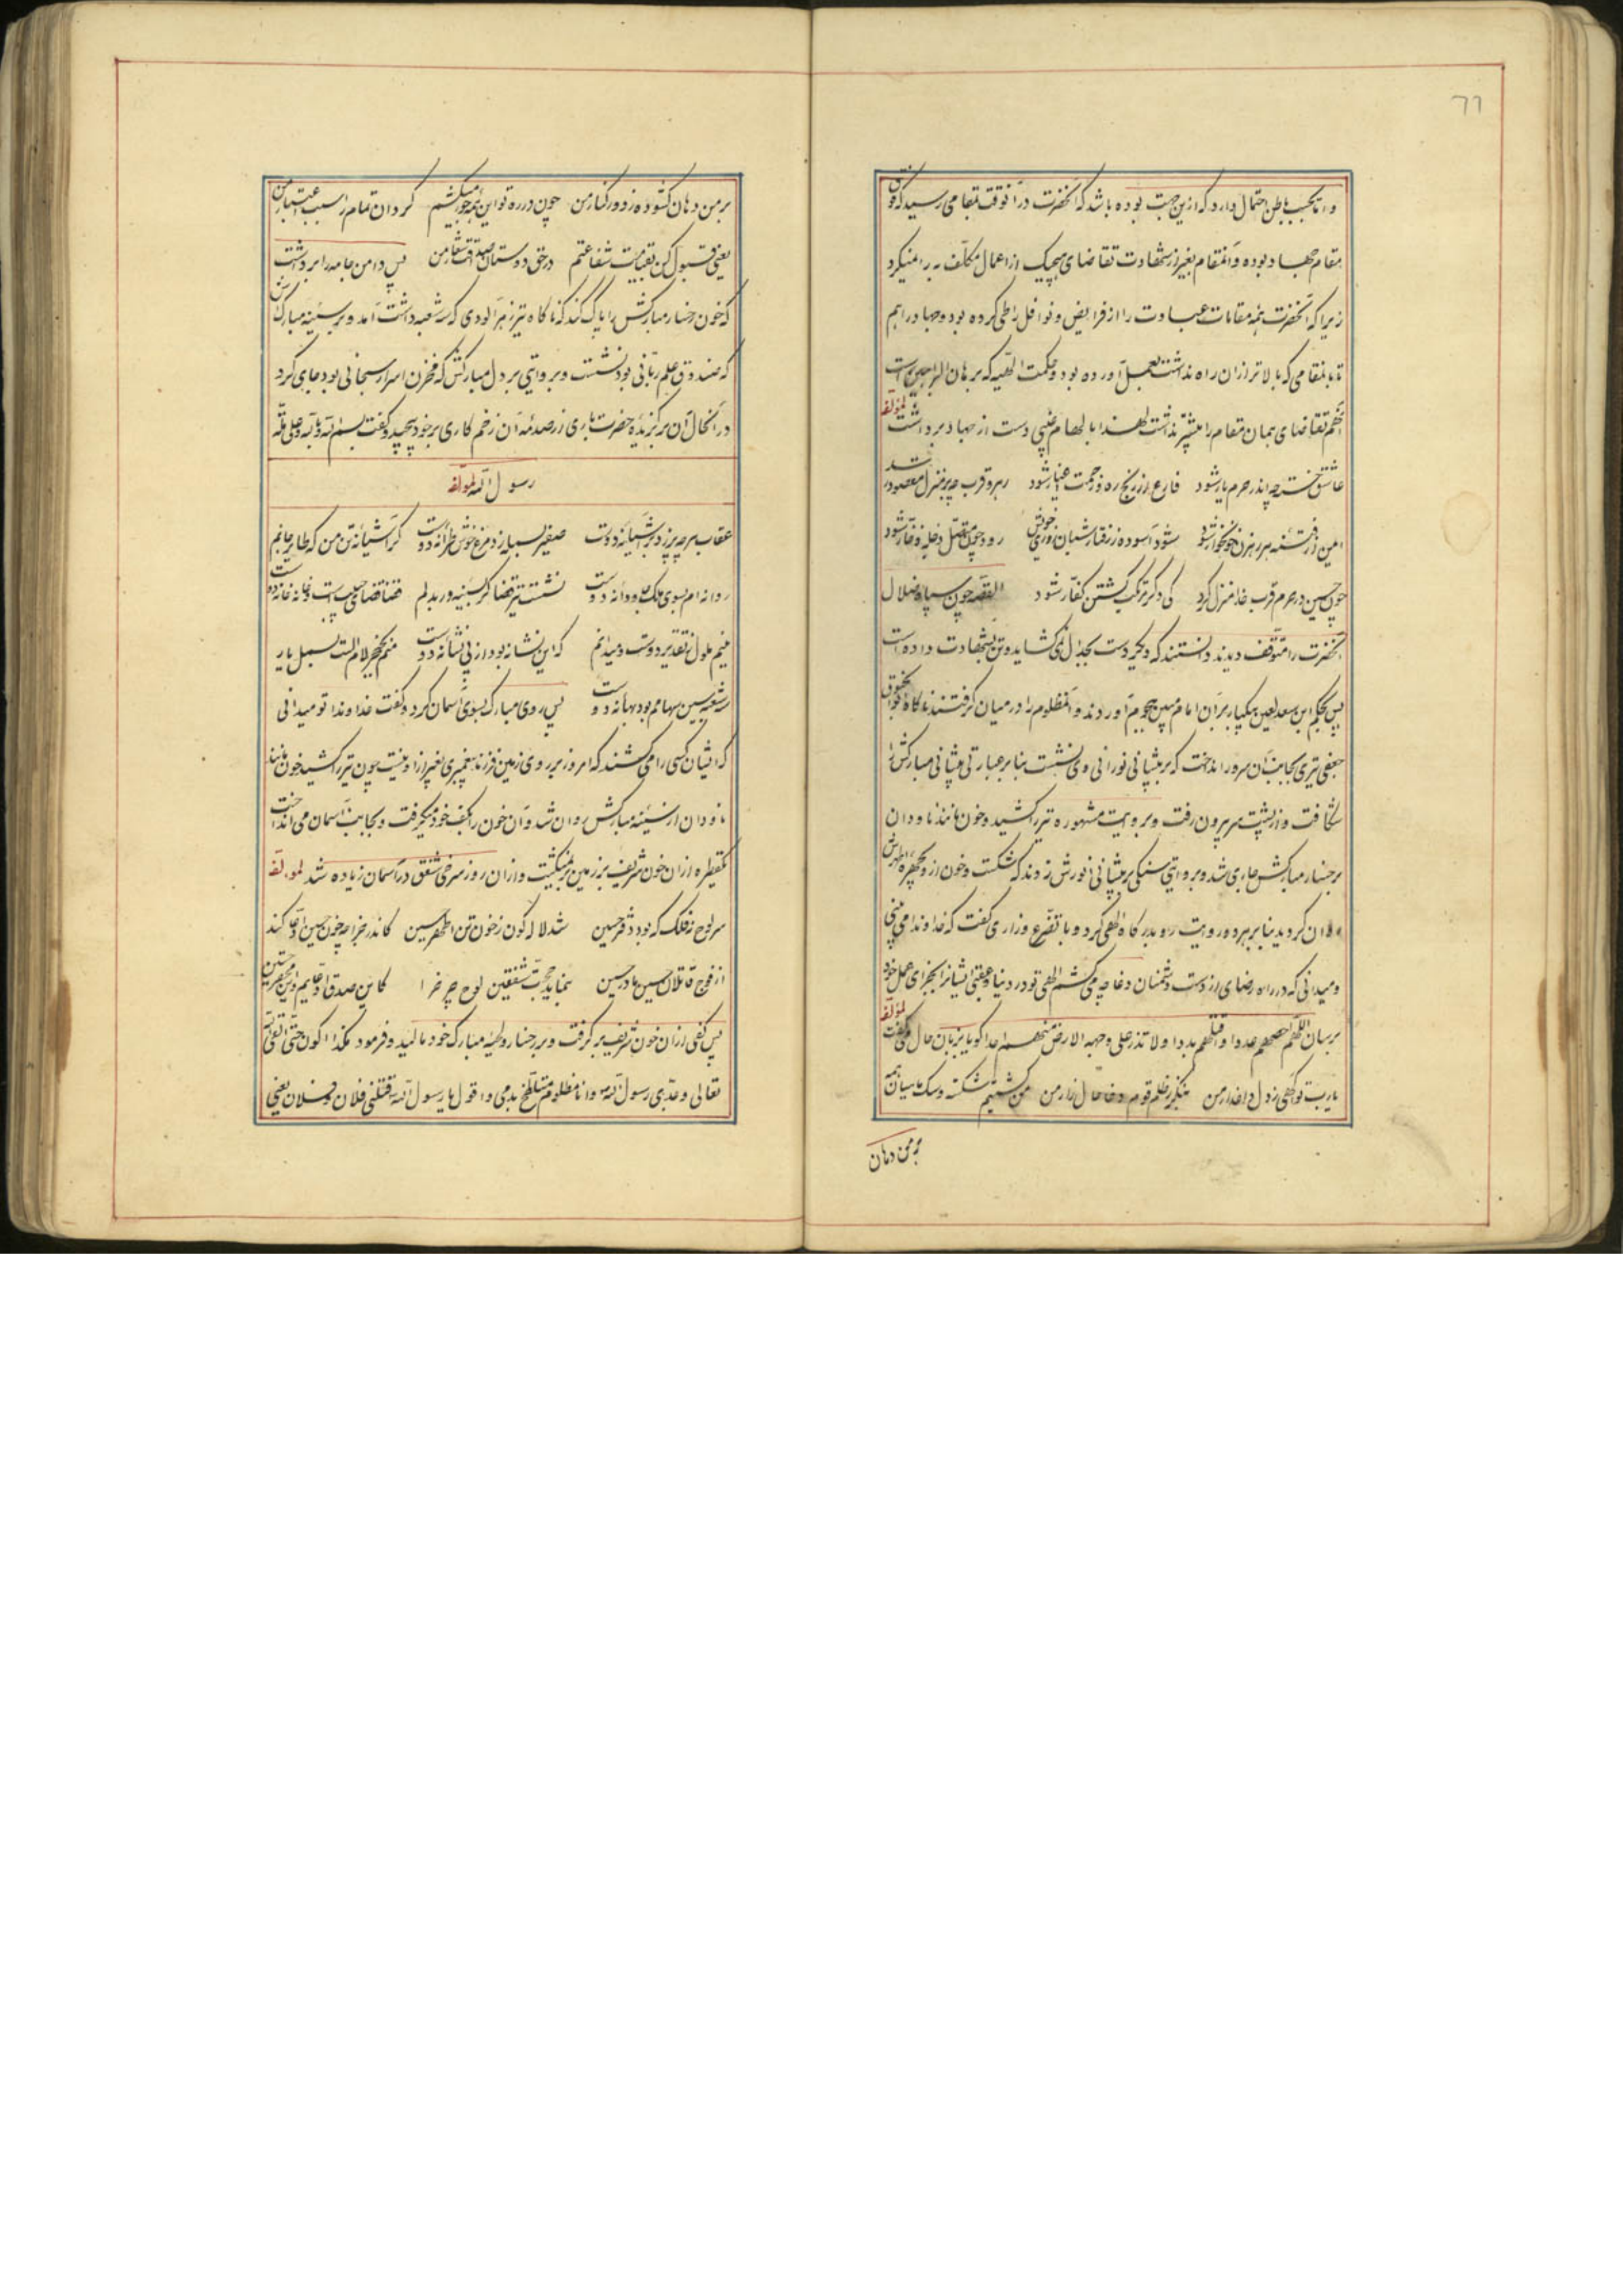 ۶۶
و اما بحسب باطن احتمال دارد که ازین جهت بوده باشد که آنحضرت در آنوقت بمقامی رسید که فوق
مقام جهاد بوده و آنمقام بغیر از شهادت تقاضای هیچیک از اعمال مکلّف به را نمیکرد
زیرا که آنحضرت همه مقامات عبادت را از فرایض و نوافل را طی کرده بود و جهاد را هم
تا بمقامی که بالاتر از ان راه نداشت بعمل آورده بود و حکمت الهیه که برهان البراهین است
تقاضای همان مقام را بیشتر نداشت لهذا بالهام غیبی دست از جهاد برداشت لمؤلفه
عاشق خسته چه اندر حرم یار شود فارغ از رنج ره و زحمت اغیار شود رهرو قرب چه بر منزل مقصود رسد
ایمن از فتنه هر رهزن خونخوار شود شود آسوده ز رفتار شبان روزی خویش رود چون متصل
چون حسین در حرم قرب خدا منزل کرد کی دگر مرتکب کشتن کفّار شود القصه چون سپاه ضلال
آنحضرت را متوقف دیدند دانستند که دیگر دست بجدال نمی گشاید و تن بشهادت داده است
پس بحکم ابن سعد لعین بیکبار بر آن امام مبین هجوم آوردند و آنمظلوم را در میان گرفتند ناگاه ابوالحنوق
جعفی تیری بجانب آن سرور انداخت که بر پیشانی نورانی وی نشست بنا بر عبارتی پیشانی مبارکش را
شکافت و از پشت سر بیرون رفت و بروایت مشهوره تیر را کشید و خون مانند ناودان
بر رخسار مبارکش جاری شد و بروایتی سنگی بر پیشانی انورش زدند که شکست و خون از وی بچهره اطهرش
روان گردید بنا بر هر دو روایت رو بدرگاه الهی کرد و با تضرّع و زاری گفت که خداوندا می بینی
و میدانی که در راه رضای تو از دست دشمنان دغا چه می کشم الهی تو در دنیا و عقبی ایشانرا بجزای عمل خود
برسان اللهم احصهم عددا و اقتلهم بددا و لا تذر علی وجهه الارض منهم احدا گویا بزبان حال می گفت لمؤلفه
یا رب تو آگهی ز دل داغدار من بنگر ز ظلم قوم دغا حال زار من من کشتیم شکسته و سگ ماهیان همه
بر من دهان
بر من دهان گشوده ز دور کنار من چون در ره تو این همه جور میکشم گردان تمام را سبب اعتبار من
یعنی قبول کن بقیامت شفاعتم در حق دوستان صداقت شعار من پس دامن جامه را برداشت
که خون رخسار مبارکش را پاک کند که ناگاه تیر زهر آلودی که سه شعبه داشت آمد و بر سینه مبارکش
که صندوق علم ربّانی بود نشست و بروایتی بر دل مبارکش که مخزن اسرار سبحانی بود جای کرد
در آنحال آن برگزیده حضرت باری از صدمه آن زخم کاری بر خود پیچید و گفت بسم الله و بالله و علی ملّه
رسول الله لمؤلفه
عقاب مرحه پر زد بر آشیانه دوست صفیر بسیار زد مرغ خوش ترانه دوست گر آشیانه تن من که طایر جانم
روانه ام بسوی ملک جاودانه دوست نشست تیر قضا گر بسینه و بدلم قضا قضای حبیب است و خانه خانه دوست
نیم ملول ز تقدیر دوست و میدانم که این نشانه بود از پی نشانه دوست منم بخنجر لام الست بسمل یار
سه شعبه بین بهانه دوست پس روی مبارک بسوی آسمان کرد و گفت خداوندا تو میدانی
که ایشان کسی را می کشند که امروز بر روی زمین فرزند پیغمبری بغیر از او نیست چون تیر را کشید خون مانند
ناودان از سینه مبارکش روان شد و آن خون را بکف خود میگرفت و بجانب آسمان می انداخت
یکقطره از ان خون شریف بر زمین برنمیگشت و از ان روز سرخی شفق در آسمان زیاده شد لمؤلفه
سر لوح فلک که بود دفتر حسین شد لاله گون ز خون تن اطهر حسین کاندر جزا چه خون حسین ادّعا کند
از فوج قاتلان حسین مادر حسین بنماید حجت شفقین لوح چرخ را کاین صدق ادّعایم و این محضر حسین
پس کفی از ان خون شریف برگرفت و بر رخسار و لحیه مبارک خود مالید و فرمود هکذا اکون حتّی القی الله
تعالی و جدّی رسول الله و انا مظلوم متلطّخ بدمی و اقول یا رسول الله قتلنی فلان و فلان یعنی